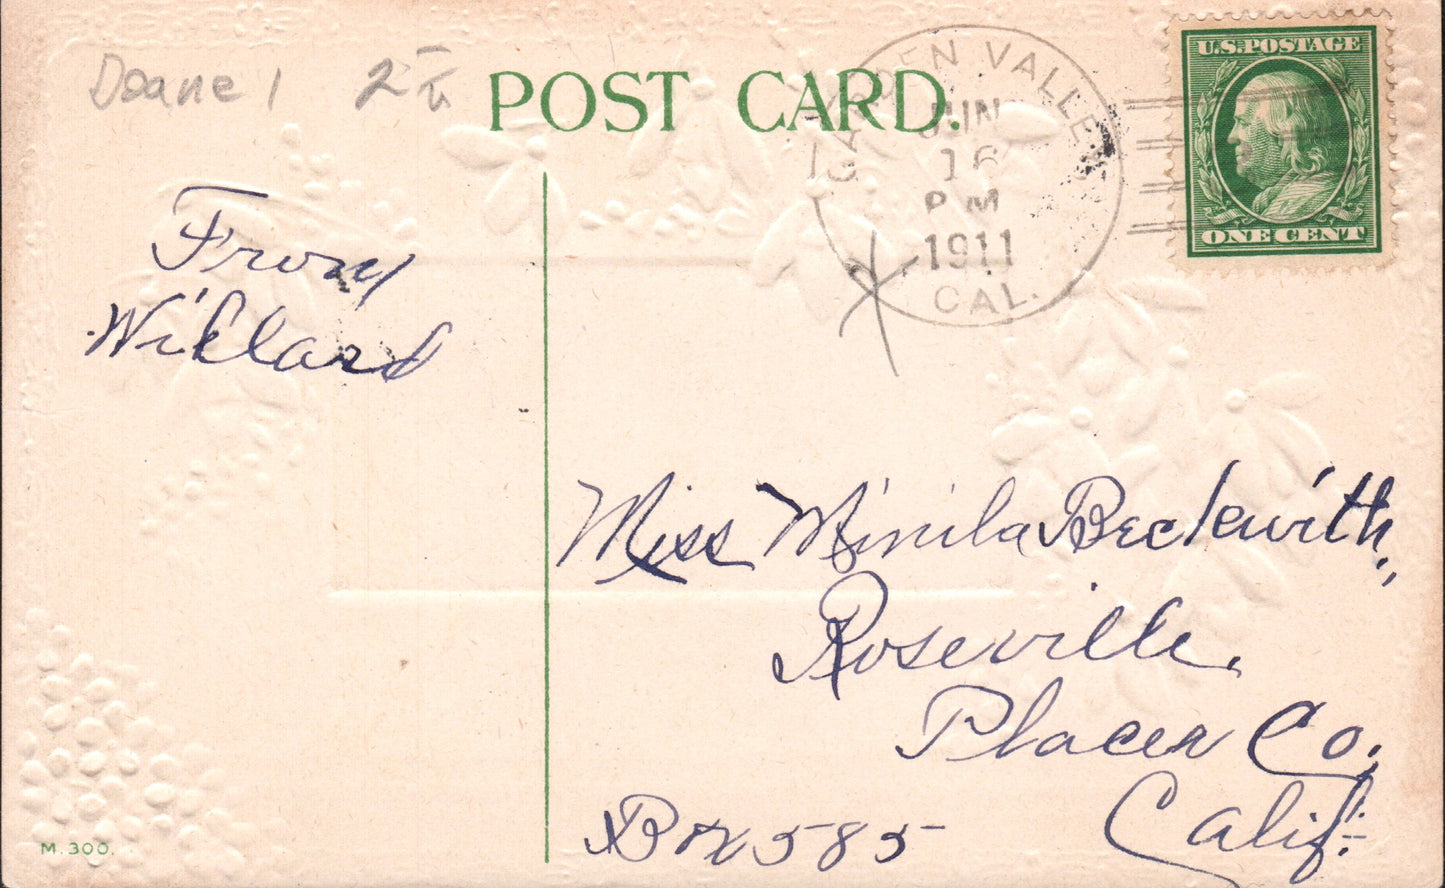 Doane 1
POST CARD.
GARDEN VALLEY
JUN
16
P M
1911
CAL.
U.S.POSTAGE
ONE CENT
From
Willard
Miss Minila Beckwith,
Roseville,
Placer Co,
Calif.
Box 585
M.300.